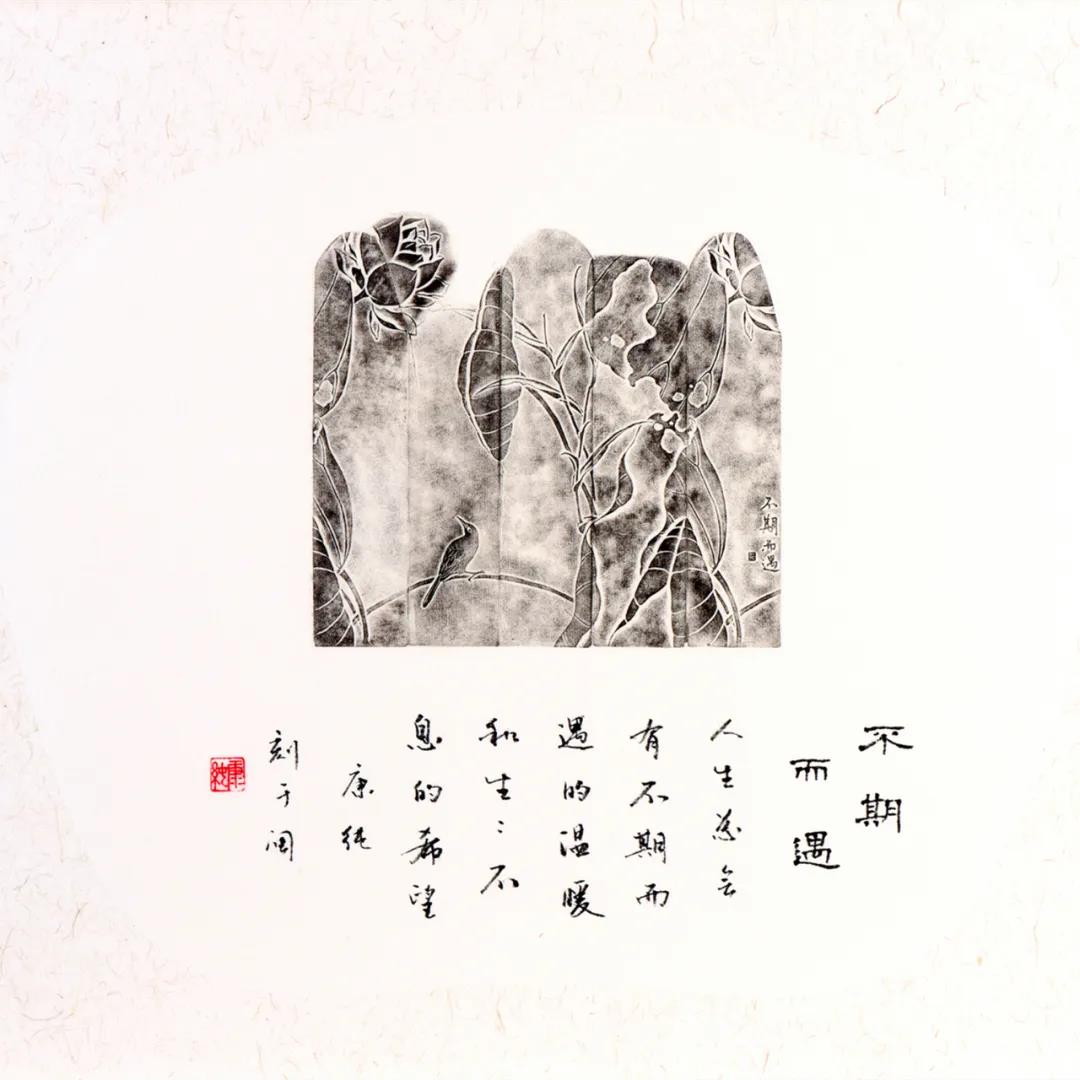 不期而遇
不期
而遇
人生总会
有不期而
遇的温暖
和生〻不
息的希望
康纯
刻于闽